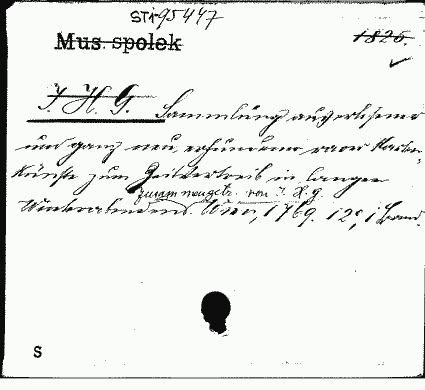 STi 95447
Mus. spolek 1826.
J. H. G. Sammlung auserlesener
und ganz neu erfundener rarer Karten-
künste zum Zeitvertreib in langen
zusammengetr. von J. H. G.
Winterabenden. Wien, 1769. 12°, 1 Band.
S